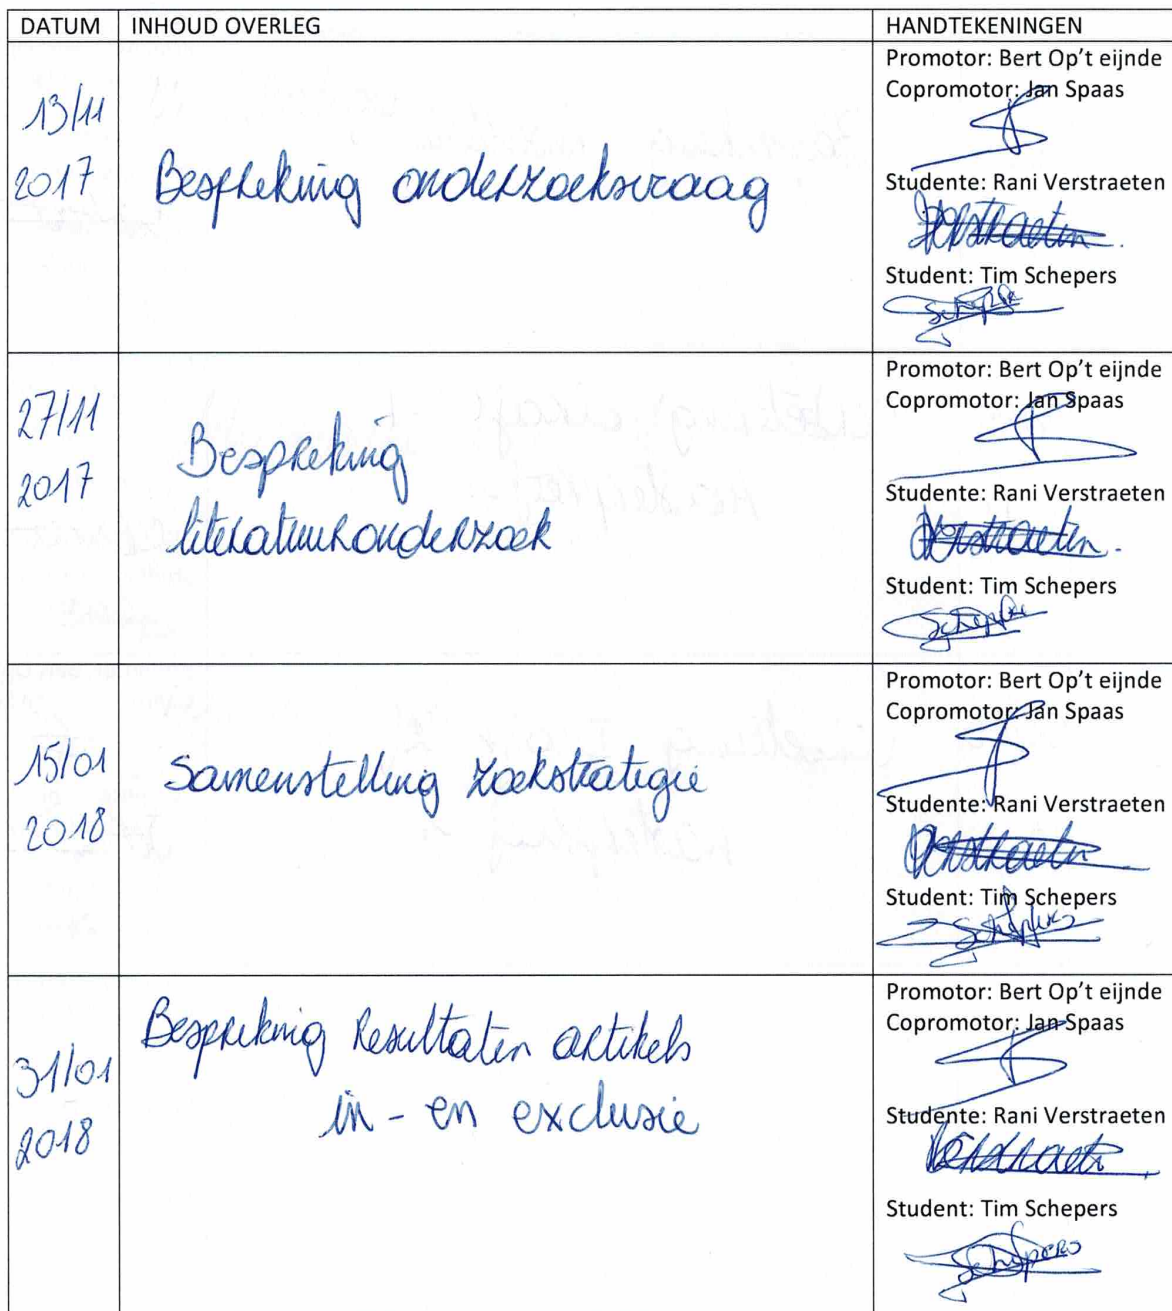 DATUM INHOUD OVERLEG HANDTEKENINGEN
13/11
2017
Bespreking onderzoeksvraag
Promotor: Bert Op't eijnde
Copromotor: Jan Spaas
Studente: Rani Verstraeten
Verstraeten
Student: Tim Schepers
Schepers
27/11
2017
Bespreking
literatuuronderzoek
Promotor: Bert Op't eijnde
Copromotor: Jan Spaas
Studente: Rani Verstraeten
Verstraeten
Student: Tim Schepers
Schepers
15/01
2018
Samenstelling zoekstrategie
Promotor: Bert Op't eijnde
Copromotor: Jan Spaas
Studente: Rani Verstraeten
Verstraeten
Student: Tim Schepers
Schepers
31/01
2018
Bespreking resultaten artikels
in- en exclusie
Promotor: Bert Op't eijnde
Copromotor: Jan Spaas
Studente: Rani Verstraeten
Verstraeten
Student: Tim Schepers
Schepers